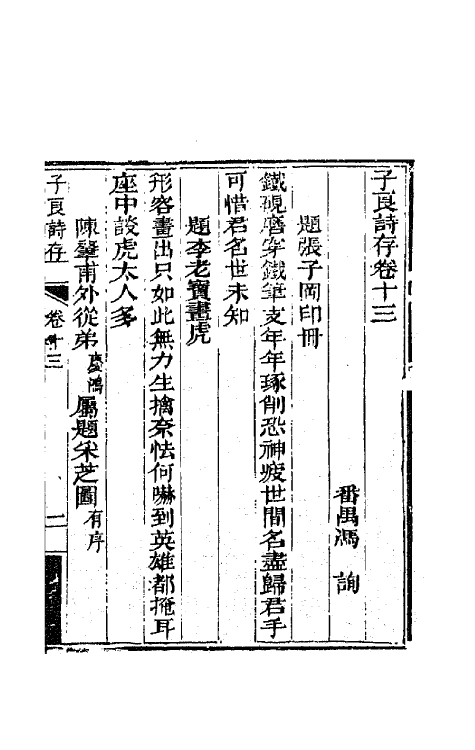 子良詩存卷十三
番禺馮　詢
題張子岡印冊
鐵硯磨穿鐵筆支年年琢削恐神疲世間名盡歸君手
可惜君名世未知
題李老寶畫虎
形容畫出只如此無力生擒奈怯何嚇到英雄都掩耳
座中談虎大人多
陳肇甫外從弟慶鴻屬題采芝圖有序
子良詩存　卷十三　一